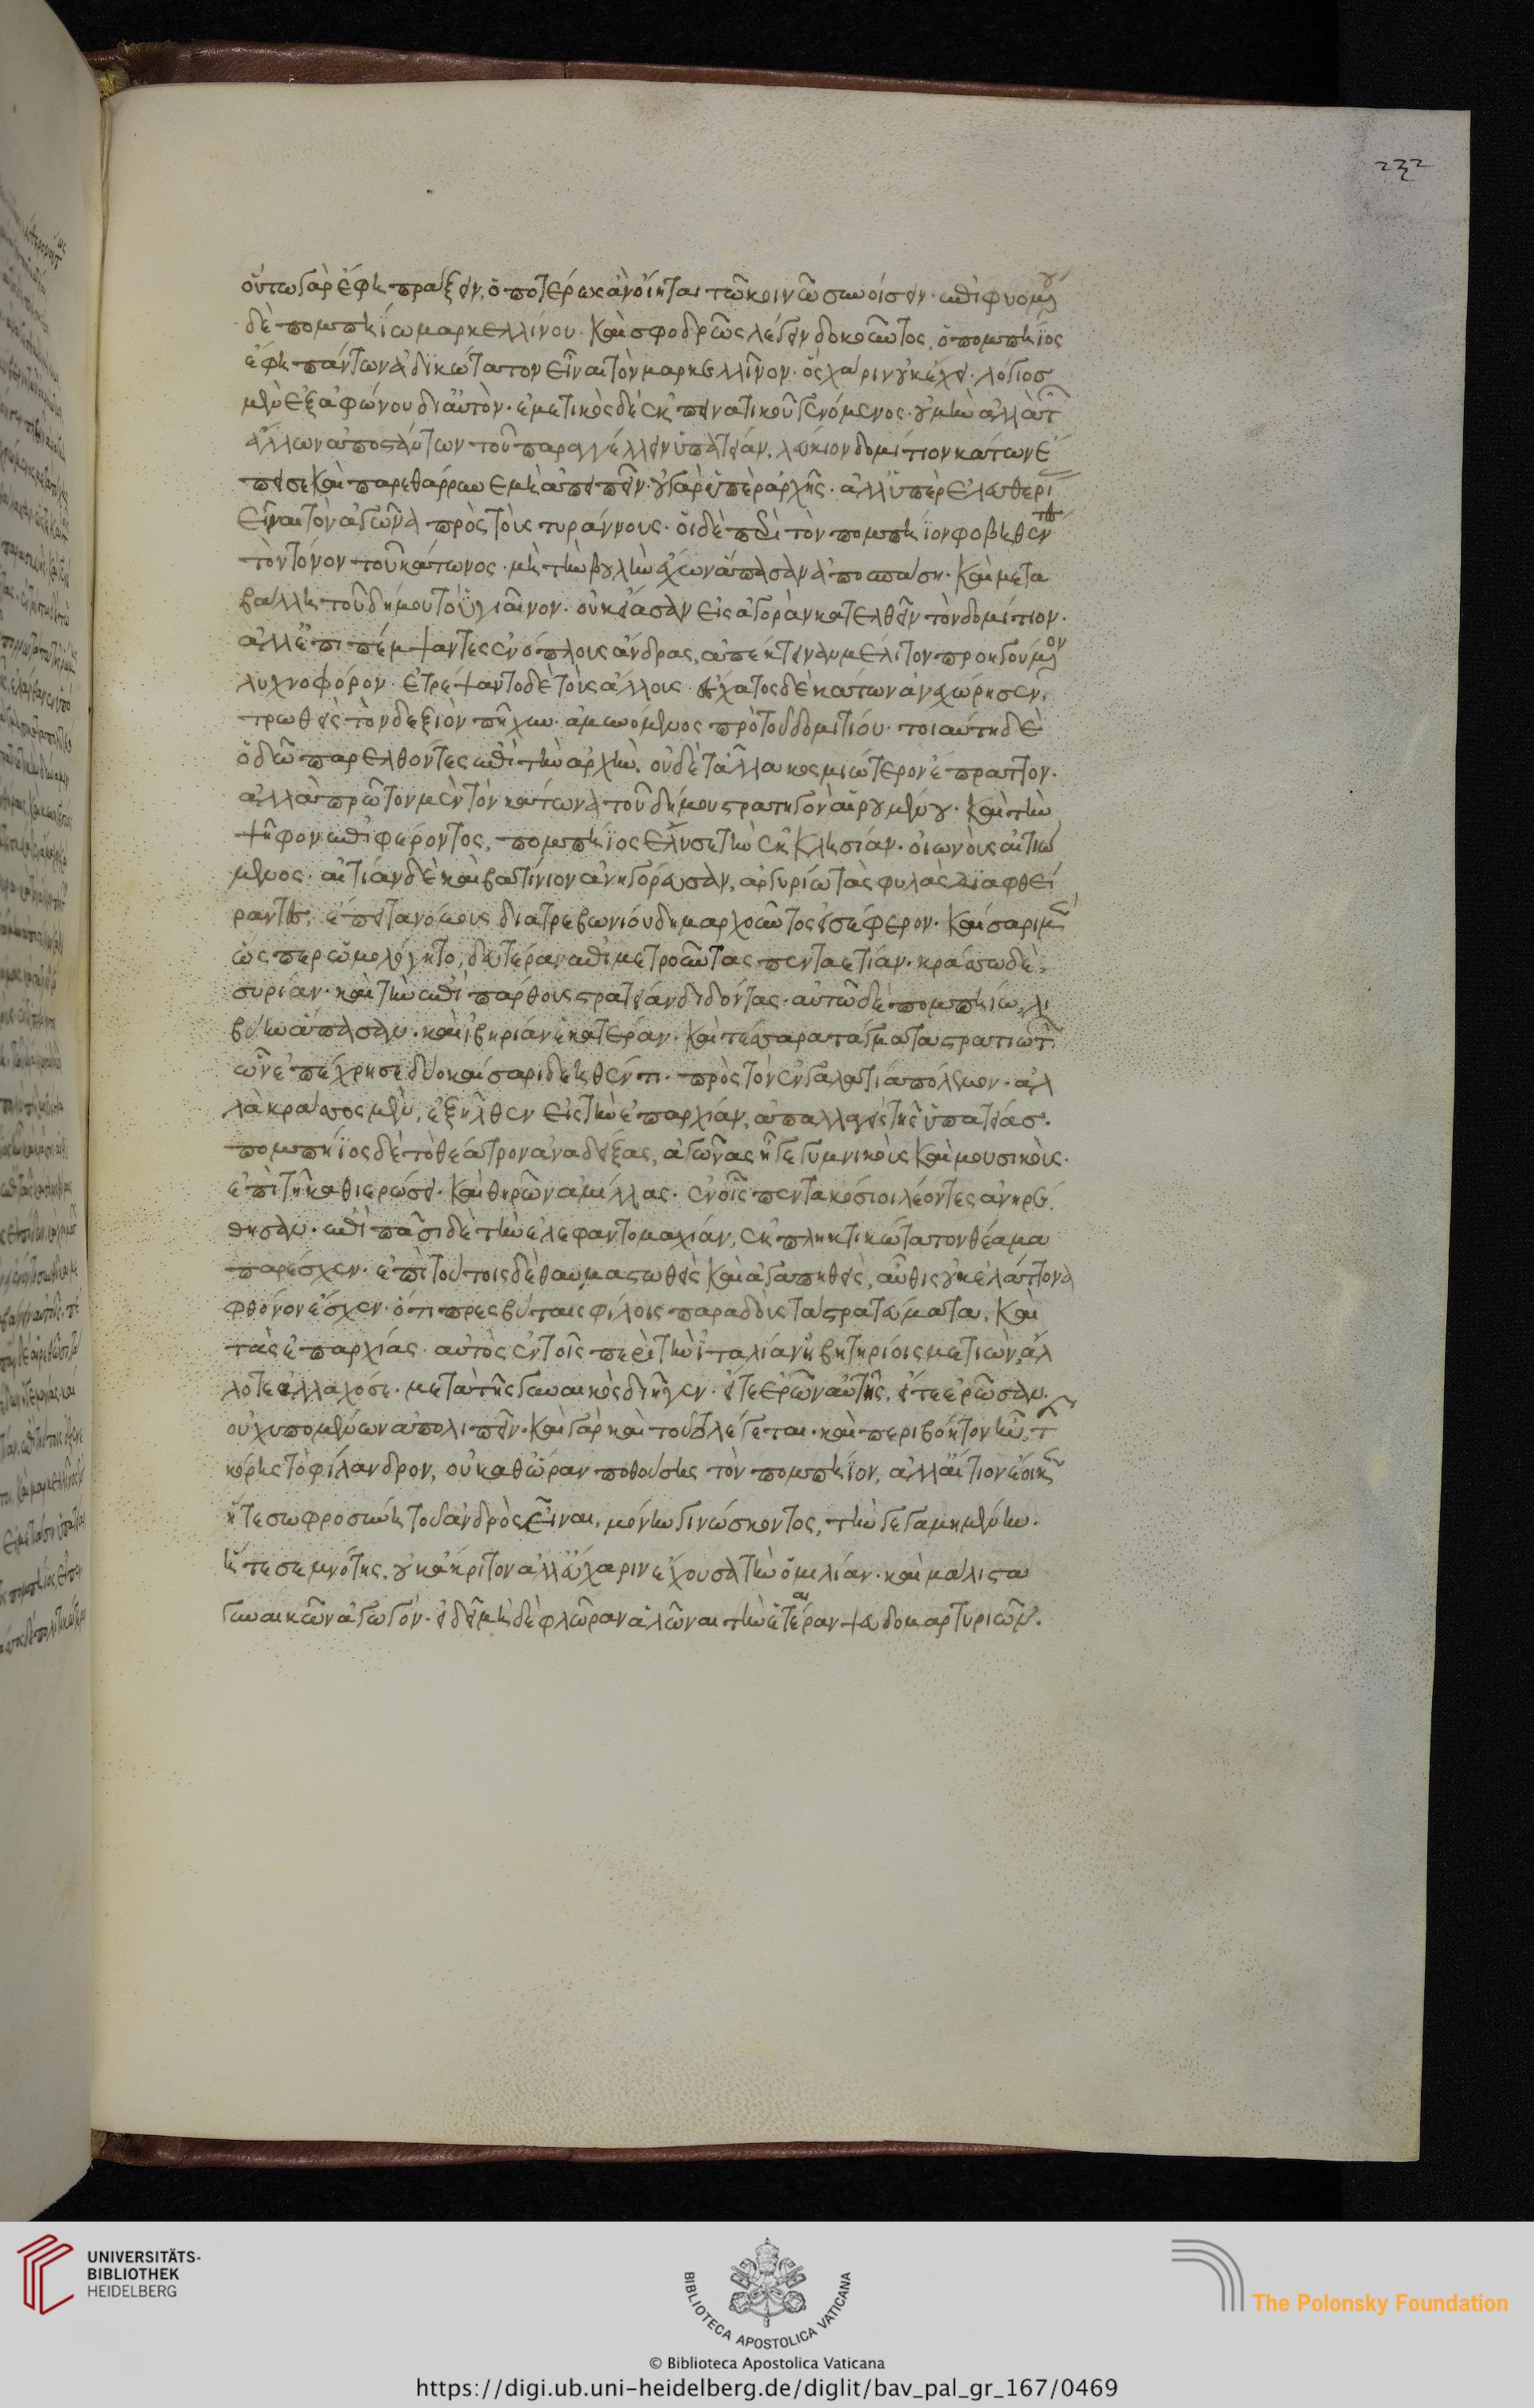 232
οὕτω γὰρ ἔφη πράξειν, ὁποτέρως ἂν οἴηται τῶ κοινῶ συνοίσειν· ἐπιφυομένου
δὲ πομπηΐω μαρκελλίνου· καὶ σφοδρῶς λέγειν δοκοῦντος, ὁ πομπήϊος
ἔφη πάντων ἀδικώτατον εἶναι τὸν μαρκελλῖνον· ὃς χάριν οὐκ ἔχει· λόγιος
μὲν ἐξ ἀφώνου δι αὐτὸν· ἐμετικὸς δὲ ἐκ πεινατικοῦ γενόμενος· οὐ μὴν ἀλλὰ τῶν
ἄλλων ἀποστάντων τοῦ παραγγέλλειν ὑπατείαν, λεύκιον δομίτιον κάτων ἔ
πεισε καὶ παρεθάρρυνε μὴ ἀπειπεῖν· οὐ γὰρ ὑπὲρ ἀρχῆς· ἀλλ ὑπὲρ ἐλευθερί
εἶναι τὸν ἀγῶνα πρὸς τοὺς τυράννους· οἱ δὲ περὶ τὸν πομπήϊον φοβηθέντες
τὸν τόνον τοῦ κάτωνος· μὴ τὴν βουλὴν ἔχων ἅπασαν ἀποσπάση· καὶ μετα
βάλλη τοῦ δήμου τὸ ὑγιαῖνον· οὐκ εἴασαν εἰς ἀγορὰν κατελθεῖν τὸν δομίτιον·
ἀλλ ἐπιπέμψαντες ἐνόπλους ἄνδρας, ἀπέκτειναν μελίτον προηγούμενον
λυχνοφόρον· ἐτρέψαντο δὲ τοὺς ἄλλους· ἔσχατος δὲ κάτων ἀνεχώρησεν,
τρωθεὶς τὸν δεξιὸν πῆχυν· ἀμυνόμενος πρὸ τοῦ δομιτίου· τοιαύτη δὲ
ὁδῶ παρελθόντες ἐπὶ τὴν ἀρχὴν, οὐδὲ τἄλλα κοσμιώτερον ἔπραττον·
ἀλλὰ πρῶτον μὲν τὸν κάτωνα τοῦ δήμου στρατηγὸν αἱρουμένου· καὶ τὴν
ψῆφον ἐπιφέροντος, πομπήϊος ἔλυσε τὴν ἐκκλησίαν· οἰωνοὺς αἰτιώ
μενος· αἰτίαν δὲ καὶ βατίνιον ἀνηγόρευσαν, ἀργυρίω τὰς φυλὰς διαφθεί
ραντες, ἔπειτα νόμους διὰ τρεβωνίου δημαρχοῦντος εἰσέφερον· καίσαρι μὲν
ὥσπερ ὡμολόγητο, δευτέραν ἐπιμετροῦντας πενταετίαν· κράσσω δὲ,
συρίαν· καὶ τὴν ἐπὶ πάρθους στρατείαν διδόντας· αὐτῶ δὲ πομπηίω, λι
βύην ἅπασαν· καὶ ἰβηρίαν ἑκατέραν· καὶ τέσσαρα τάγματα στρατιωτῶν
ὧν ἐπέχρησε δύο καίσαρι δεηθέντι· πρὸς τὸν ἐν γαλατία πόλεμον· ἀλ
λὰ κράσσος μὲν, ἐξῆλθεν εἰς τὴν ἐπαρχίαν, ἀπαλλαγεὶς τῆς ὑπατείας·
πομπήϊος δὲ τὸ θέατρον ἀναδείξας, ἀγῶνας ἦγε γυμνικοὺς καὶ μουσικοὺς·
ἐπὶ τῆ καθιερώσει· καὶ θηρῶν ἁμίλλας· ἐν οἷς πεντακόσιοι λέοντες ἀνηρέ
θησαν· ἐπὶ πᾶσι δὲ τὴν ἐλεφαντομαχίαν, ἐκπληκτικώτατον θέαμα
παρέσχεν· ἐπὶ τούτοις δὲ θαυμαστωθεὶς καὶ ἀγαπηθεὶς, αὖθις οὐκ ἐλάττονα
φθόνον ἔσχεν· ὅτι πρεσβύταις φίλοις παραδοὺς τὰ στρατεύματα, καὶ
τὰς ἐπαρχίας· αὐτὸς ἐν τοῖς περὶ τὴν ἰταλίαν ἡβητηρίοις μετιὼν, ἄλ
λοτε ἀλλαχόσε· μετὰ τῆς γυναικὸς διῆγεν· εἴτε ἐρῶν αὐτῆς, εἴτε ἐρῶσαν
οὐχ υπομένων ἀπολιπεῖν· καὶ γὰρ καὶ τοῦτο λέγεται· καὶ περιβόητον ἦν τῆς
κόρης τὸ φίλανδρον, οὐ καθ ὥραν ποθούσης τὸν πομπήϊον, ἀλλ αἴτιον ἔοικεν
ἥ τε σωφροσύνη τοῦ ἀνδρὸς εἶναι, μόνην γινώσκοντος, τὴν γεγαμημένην·
ἥ τε σεμνότης, οὐκ ἄκριτον ἀλλ εὔχαριν ἔχουσα τὴν ὁμιλίαν· καὶ μάλιστα
γυναικῶν ἀγωγόν· εἰ δεῖ μὴ δὲ φλώραν ἁλῶναι τὴν ἑταίραν ψευδομαρτυριῶν·
UNIVERSITÄTS-
BIBLIOTHEK
HEIDELBERG
BIBLIOTECA APOSTOLICA VATICANA
The Polonsky Foundation
© Biblioteca Apostolica Vaticana
https://digi.ub.uni-heidelberg.de/diglit/bav_pal_gr_167/0469